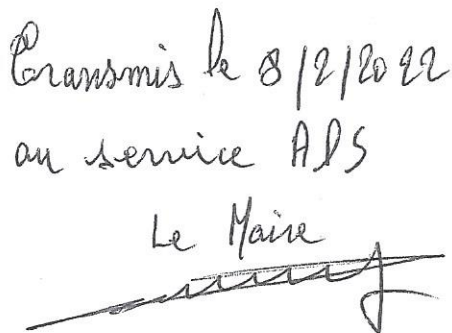 Transmis le 8/2/2022
au service ADS
Le Maire